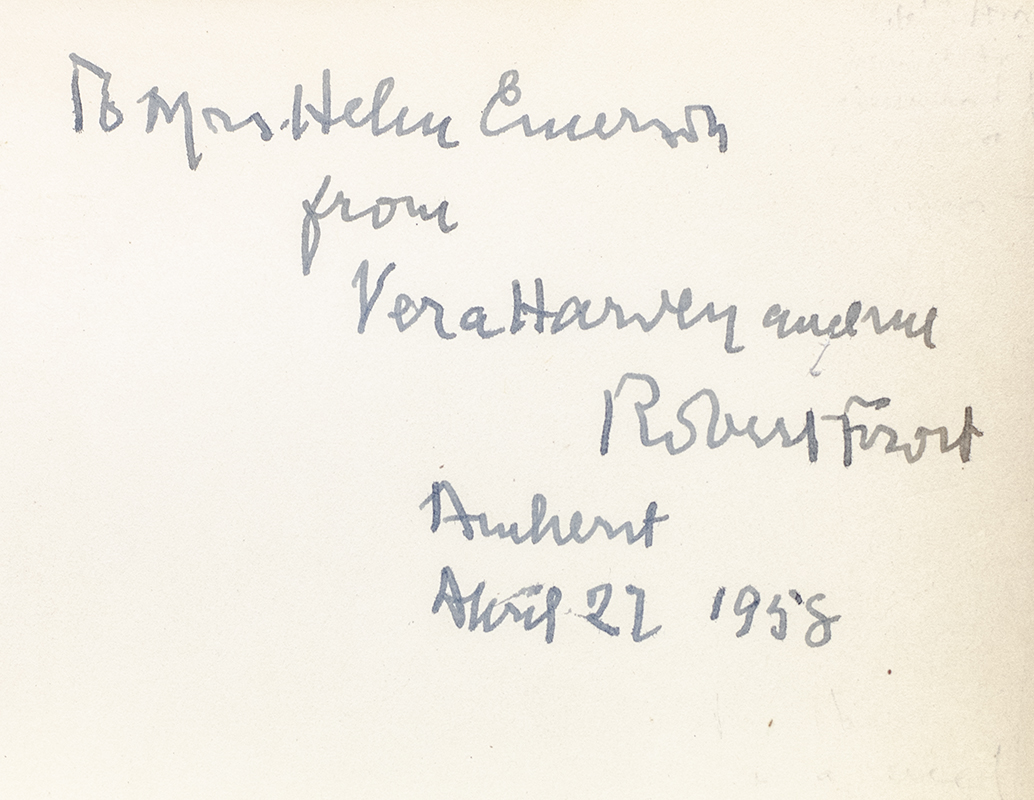 To Mrs. Helen Emerson
from
Vera Harvey and me
Robert Frost
Amherst
April 22 1958